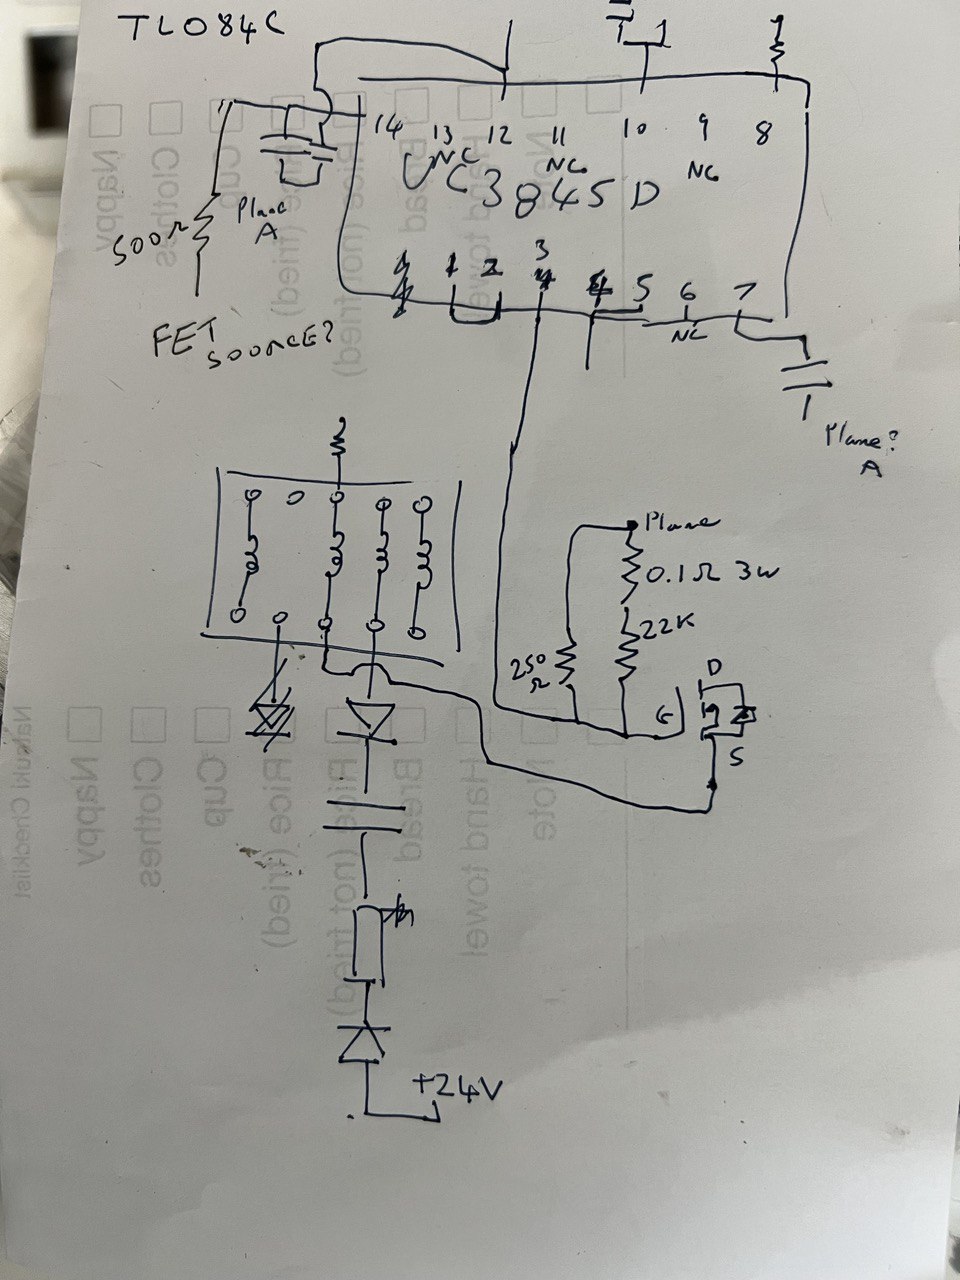 TL084C
14 13 12 11 10 9 8
NC NC NC
UC3845D
500Ω
Plane
A
FET
SOURCE?
1 2 3 4 5 6 7
NC
Plane?
A
Plane
0.1Ω 3W
22K
250
Ω
D
G
S
+24V
Nappy
Clothes
Cup
Rice (fried)
Rice (not fried)
Bread
Hand towel
Note
Natsuki Checklist
Nappy
Clothes
Cup
Rice (fried)
Rice (not fried)
Bread
Hand towel